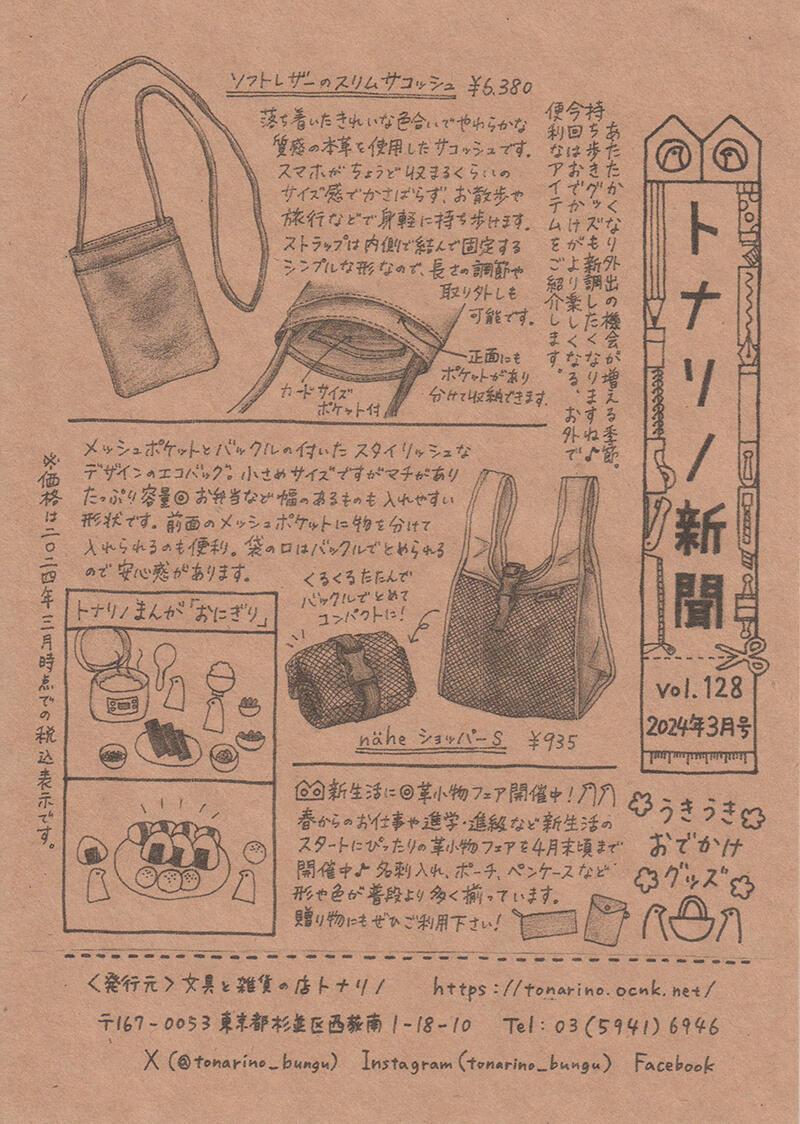 トナリノ新聞
vol.128
2024年3月号
うきうき
おでかけ
グッズ
あたたかくなり外出の機会が増える季節。
持ち歩きグッズも新調したくなりますね♪
今回はおでかけがより楽しくなる、お外で
便利なアイテムをご紹介します。
ソフトレザーのスリムサコッシュ ¥6,380
落ち着いたきれいな色合いでやわらかな
質感の本革を使用したサコッシュです。
スマホがちょうど収まるくらいの
サイズ感でかさばらず、お散歩や
旅行などで身軽に持ち歩けます。
ストラップは内側で結んで固定する
シンプルな形なので、長さの調節や
取り外しも
可能です。
正面にも
ポケットがあり
分けて収納できます。
カードサイズ
ポケット付
メッシュポケットとバックルの付いたスタイリッシュな
デザインのエコバッグ。小さめサイズですがマチがあり
たっぷり容量◎お弁当など幅のあるものも入れやすい
形状です。前面のメッシュポケットに物を分けて
入れられるのも便利。袋の口はバックルでとめられる
ので安心感があります。
くるくるたたんで
バックルでとめて
コンパクトに!
nähe ショッパーS ¥935
※価格は二〇二四年三月時点での税込表示です。
トナリノまんが「おにぎり」
新生活に◎革小物フェア開催中!
春からのお仕事や進学・進級など新生活の
スタートにぴったりの革小物フェアを4月末頃まで
開催中♪名刺入れ、ポーチ、ペンケースなど
形や色が普段より多く揃っています。
贈り物にもぜひご利用下さい!
〈発行元〉文具と雑貨の店トナリノ https://tonarino.ocnk.net/
〒167-0053 東京都杉並区西荻南1-18-10 Tel:03(5941)6946
X (@tonarino_bungu) Instagram (tonarino_bungu) Facebook